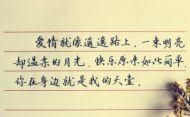 爱情就像遥遥路上,一束明亮
却温柔的月光,快乐原来如此简单,
你在身边就是我的天堂.